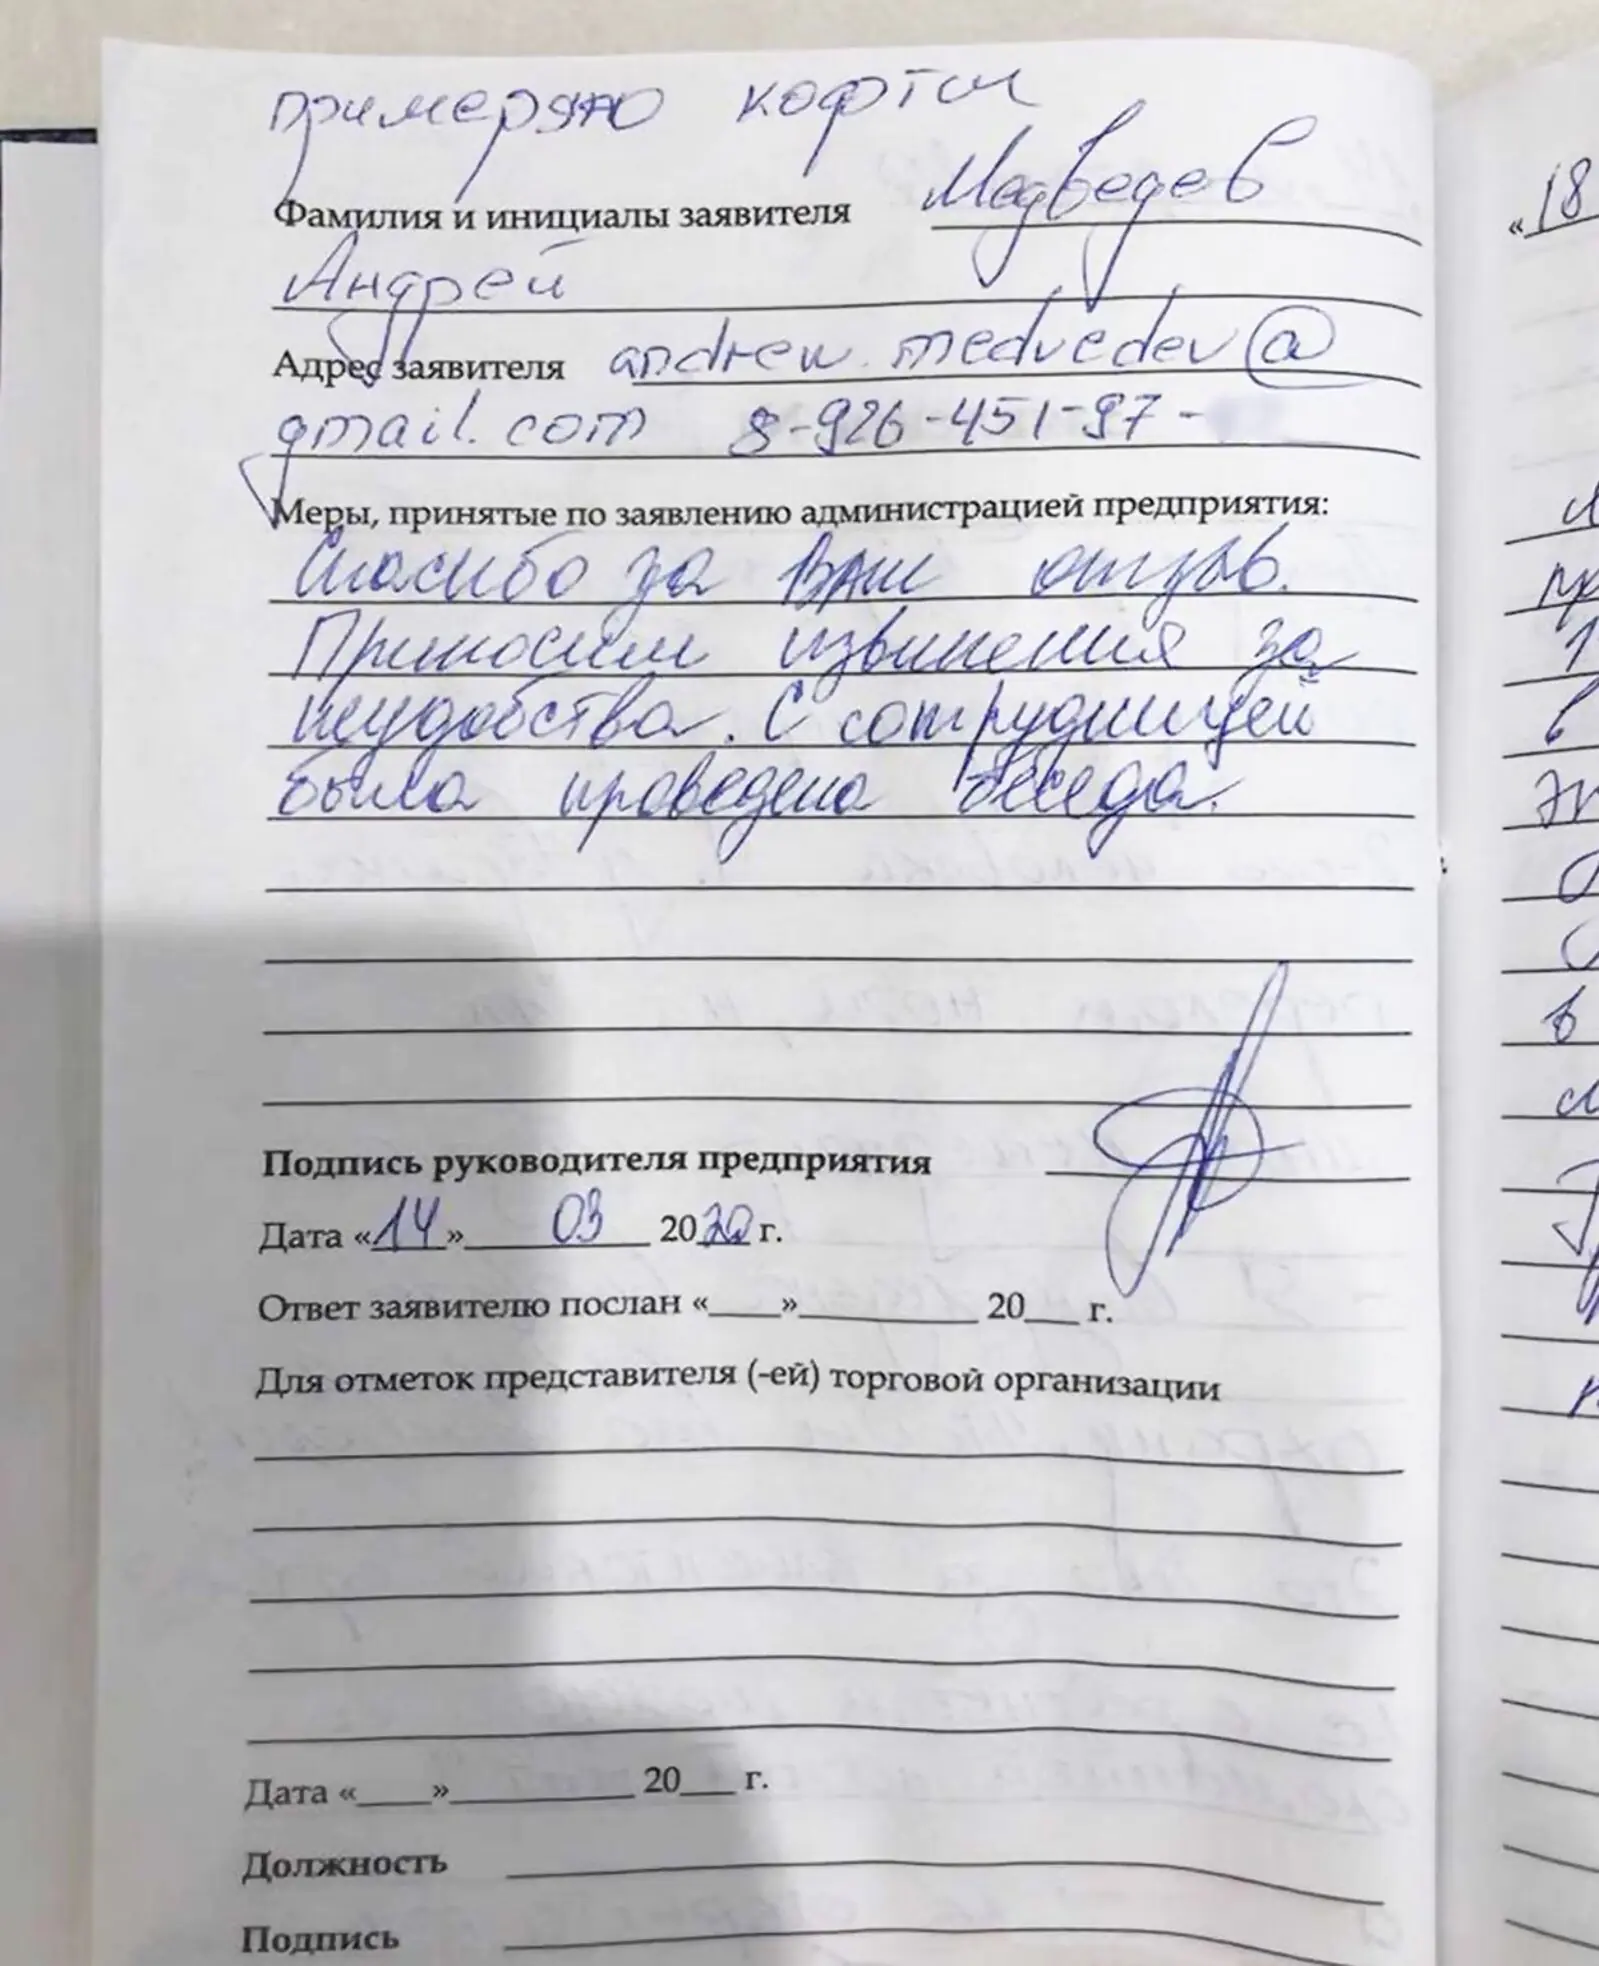 примеряю кофты
Фамилия и инициалы заявителя Медведев
Андрей
Адрес заявителя andrew.medvedev@
gmail.com 8-926-451-97-
Меры, принятые по заявлению администрацией предприятия:
Спасибо за Ваш отзыв.
Приносим извинения за
неудобства. С сотрудницей
была проведена беседа.
Подпись руководителя предприятия
Дата «14» 03 2020 г.
Ответ заявителю послан «____»__________ 20___ г.
Для отметок представителя (-ей) торговой организации
Дата «____»__________ 20___ г.
Должность
Подпись
«18